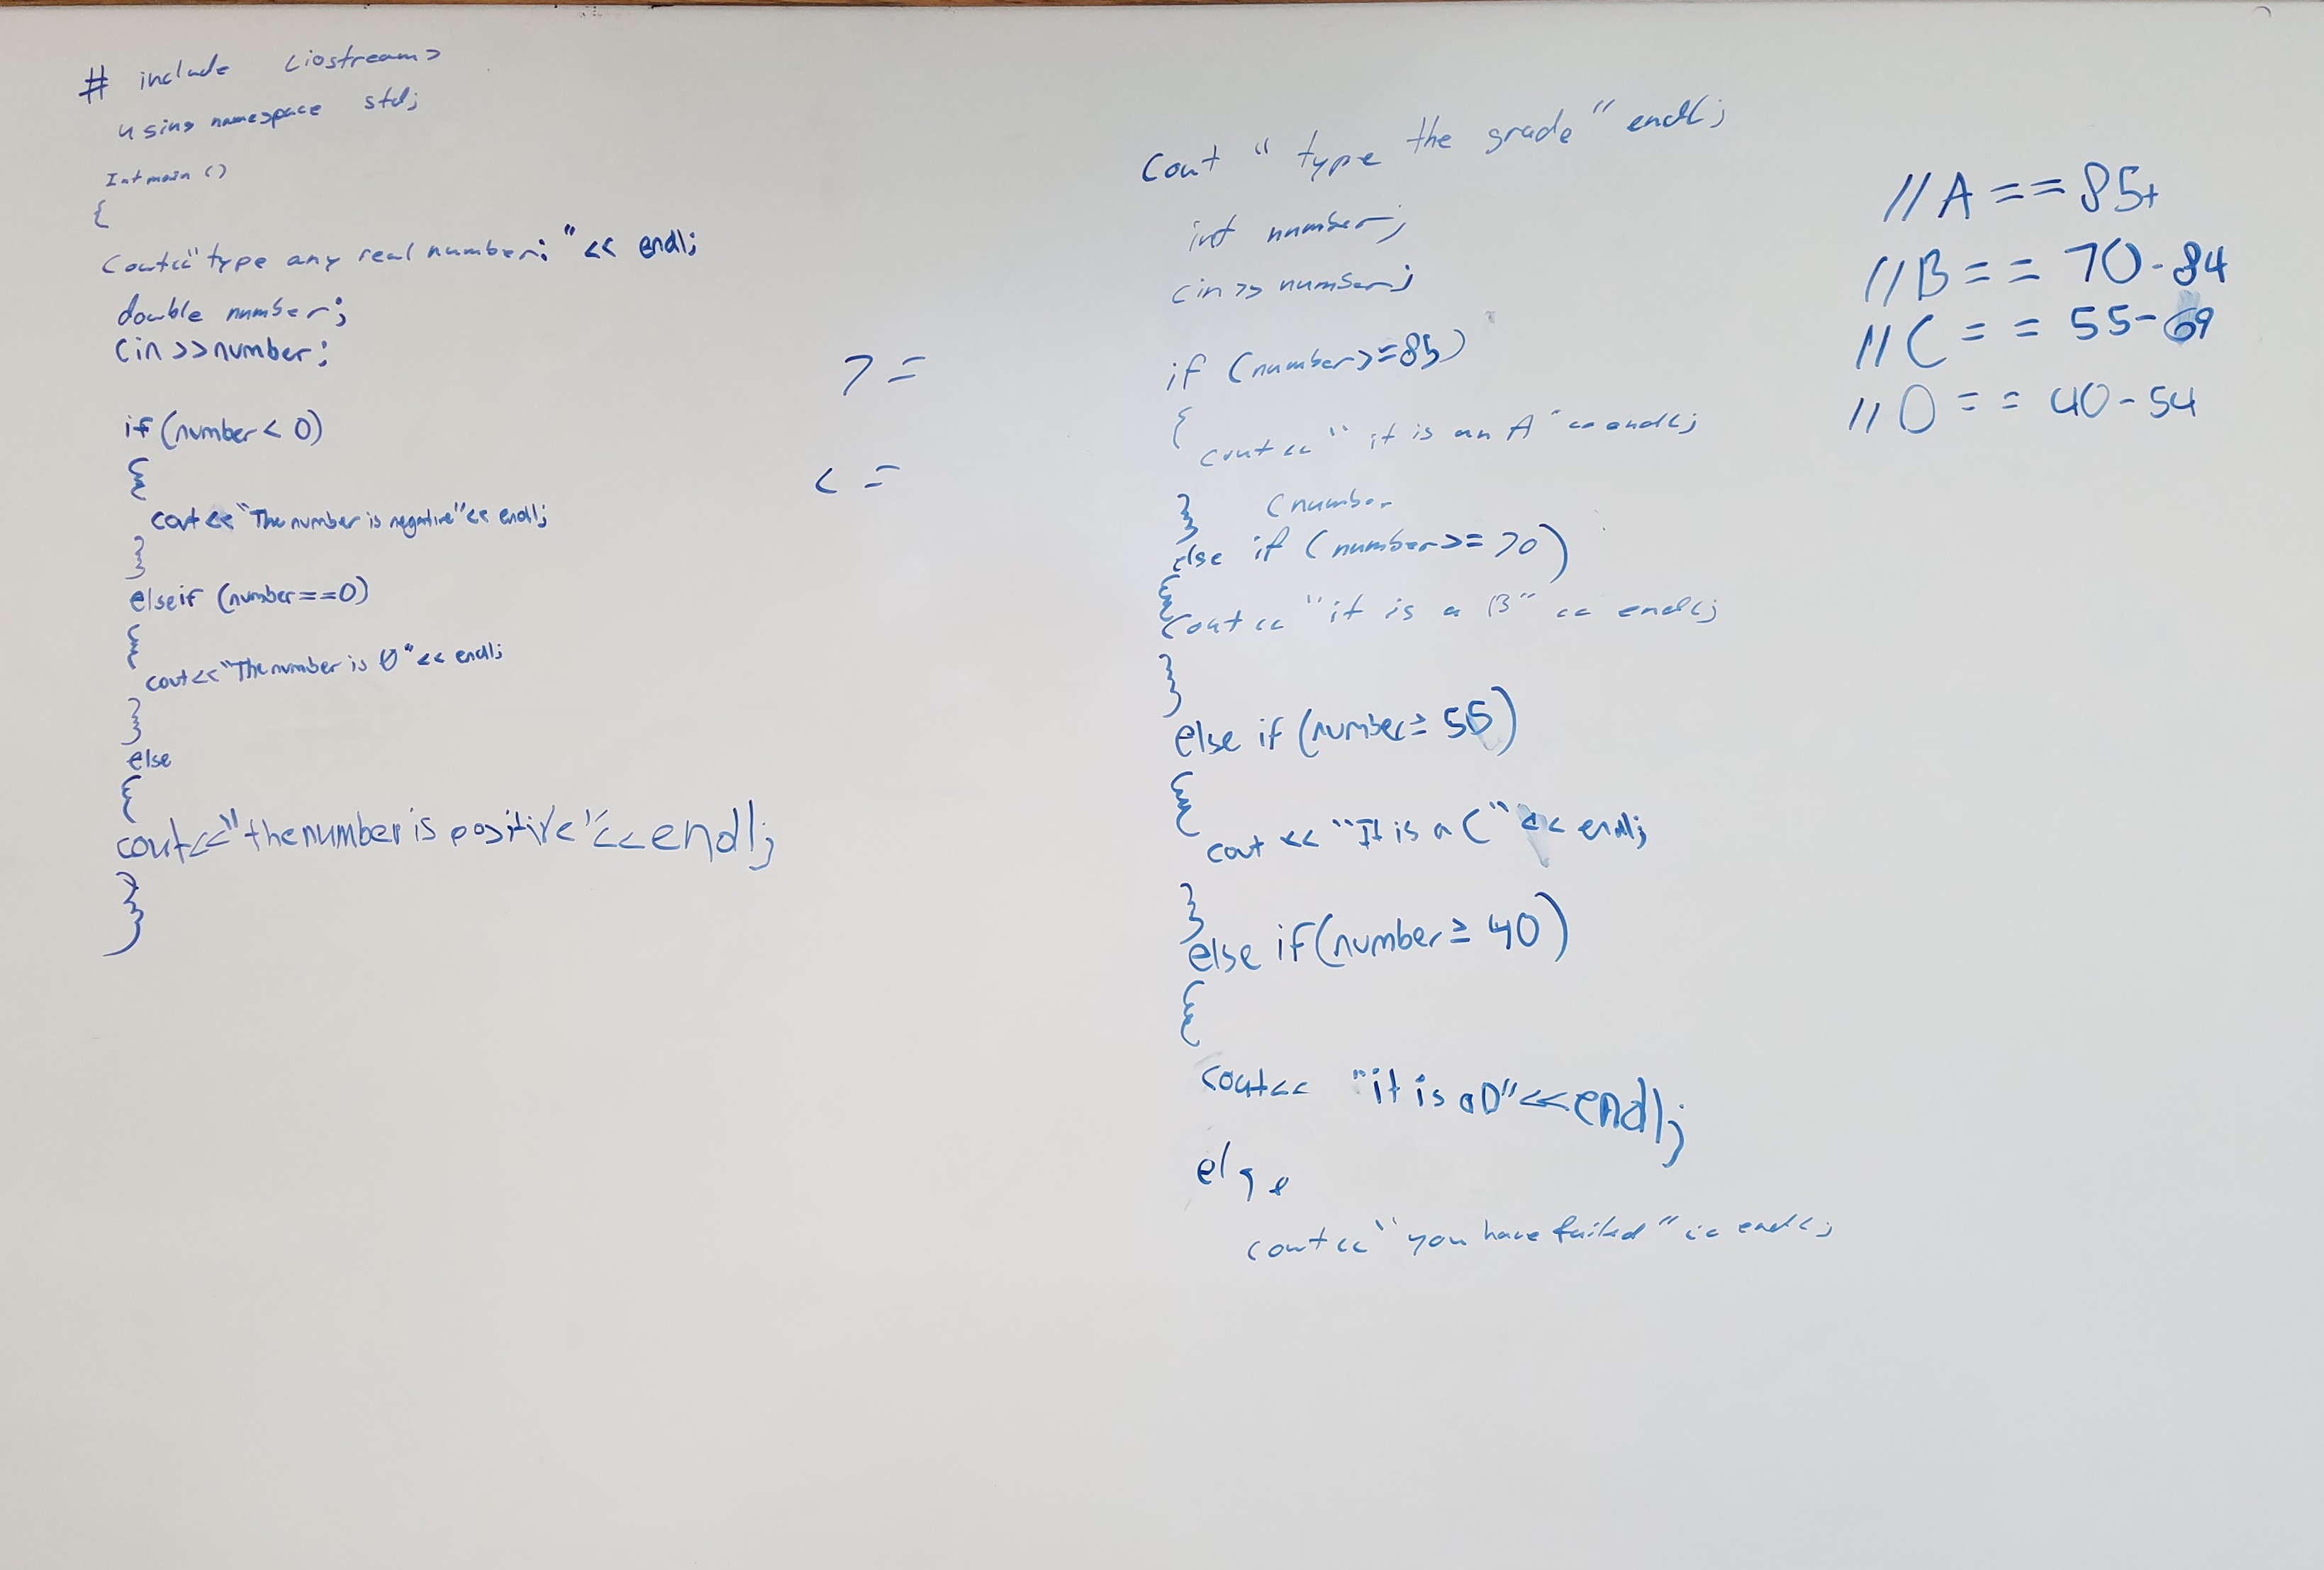 # include <iostream>
using namespace std;
Int main ()
{
Cout<<"type any real number:"<< endl;
double number;
Cin >>number;
if (number < 0)
{
cout<<"The number is negative"<< endl;
}
elseif (number==0)
{
cout<<"The number is 0"<< endl;
}
else
{
cout<<"the number is positive"<<endl;
}
>=
<=
Cout "type the grade" endl;
int number;
cin >> number;
if (number>=85)
{
cout<<"it is an A"<<endl;
} (number
else if (number>=70)
{
Cout<<"it is a B"<< endl;
}
else if (number≥ 55)
{
cout <<"It is a C"<< endl;
}
else if(number≥ 40)
{
cout<< "it is a D"<<endl;
else
cout<<"you have failed"<< endl;
//A == 85+
//B == 70-84
//C == 55-69
//D == 40-54